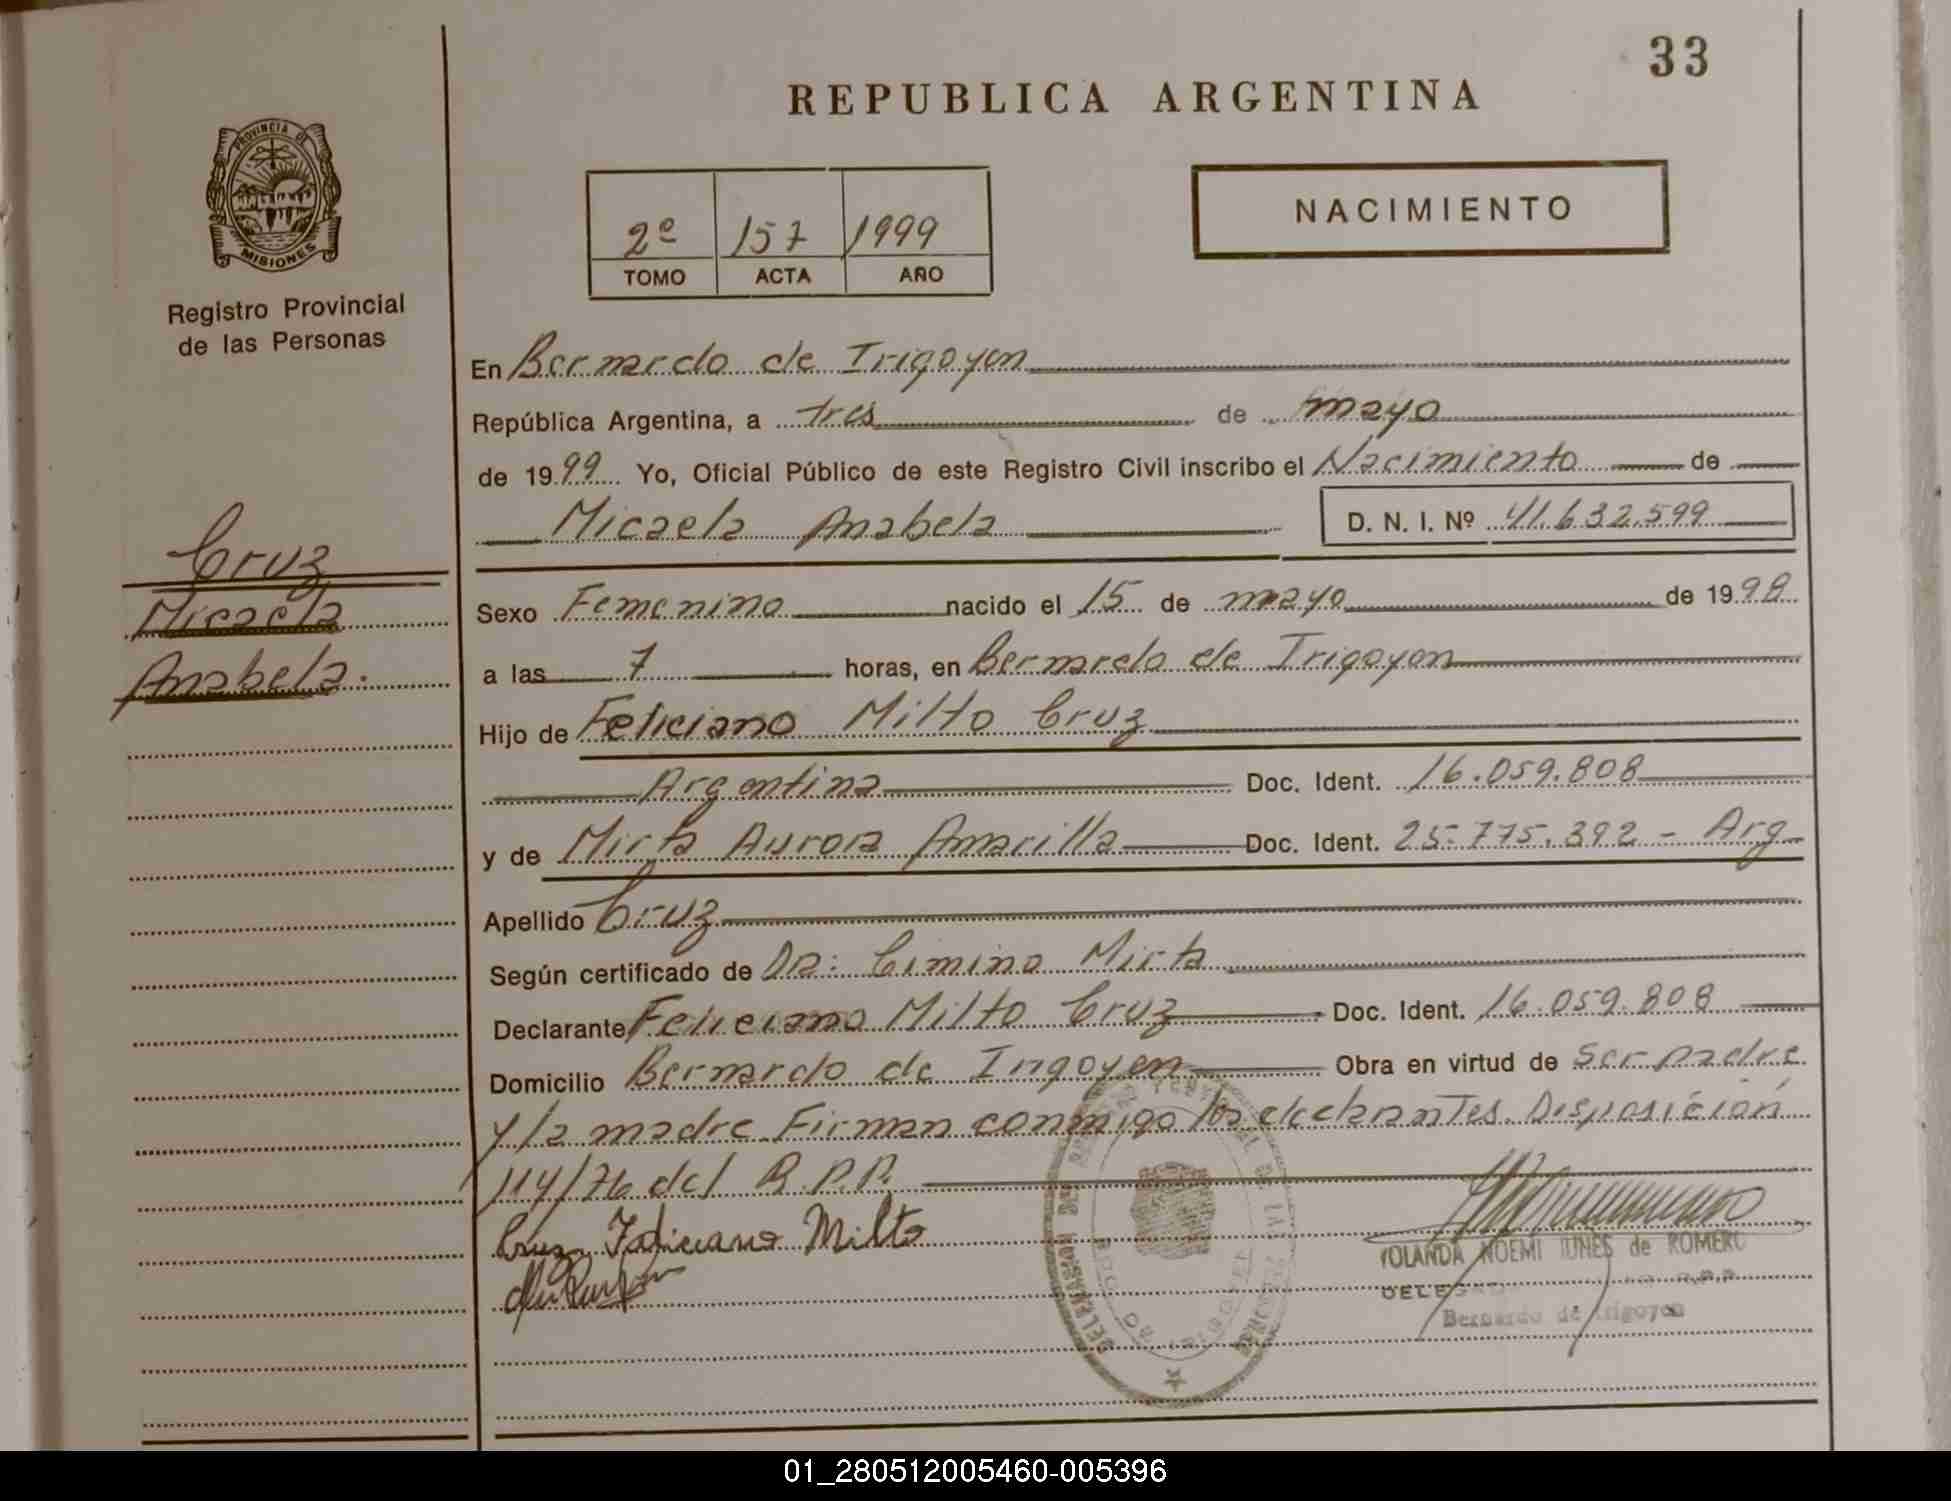 33
REPUBLICA ARGENTINA
PROVINCIA DE
MISIONES
Registro Provincial
de las Personas
NACIMIENTO
2º 157 1999
TOMO ACTA AÑO
En Bernardo de Irigoyen
República Argentina, a tres de mayo
de 1999 Yo, Oficial Público de este Registro Civil inscribo el Nacimiento de
Micaela Anabela D. N. I. Nº 41.632.599
Cruz
Micaela
Anabela.
Sexo Femenino nacido el 15 de mayo de 1998
a las 7 horas, en Bernardo de Irigoyen
Hijo de Feliciano Milto Cruz
Argentina Doc. Ident. 16.059.808
y de Mirta Aurora Amarilla Doc. Ident. 25.775.392 - Arg
Apellido Cruz
Según certificado de Da: Cimino Mirta
Declarante Feliciano Milto Cruz Doc. Ident. 16.059.808
Domicilio Bernardo de Irigoyen Obra en virtud de ser padre
y/la madre Firman conmigo los declarantes. Disposición
114/76 del R.P.P.
Cruz Feliciano Milto
YOLANDA NOEMI IUNES de ROMERO
R.P.P.
Bernardo de Irigoyen
01_280512005460-005396